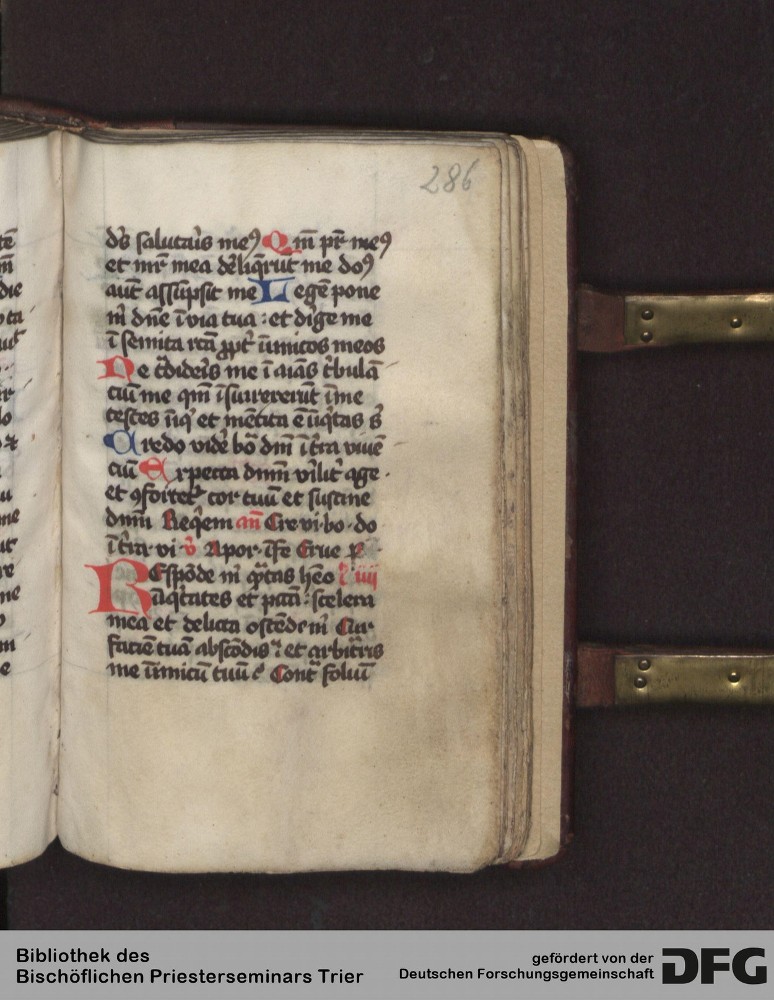 286
dꝰs salutaris meꝰ Qm̄ pr̄ meꝰ
et mr̄ mea deliq̄rūt me doꝰ
aut̄ assūpsit me Legē pone
m̄ dn̄e ī via tua : et dige me
ī semita rcā ꝓpt̄ īimicos meos
Ne t̄dideis me ī aīas t̄bulā
ciū me qm̄ īsurrexerūt ī me
testes īiqͥ et mētita ē īiqͥtas s̄
Credo videͤ bo dnī ī t̄ra viuē
ciū Expecta dnm̄ virilit̄ age
et ꝯfortet̄ cor tuū et sustine
dnm̄ Req̄em an̄ Cre vi bo do
ī t̄ra vi v̄ A por īfe Erue
Respōde m̄ q̄tas hēo l iiii
īiqͥtates et pcc̄a : scelera
mea et delicta ostēde m̄ Cur
faciē tuā abscōdis : et arbit̄ris
me īimicū tuū Cont̄ foliū
Bibliothek des
Bischöflichen Priesterseminars Trier
gefördert von der
Deutschen Forschungsgemeinschaft
DFG